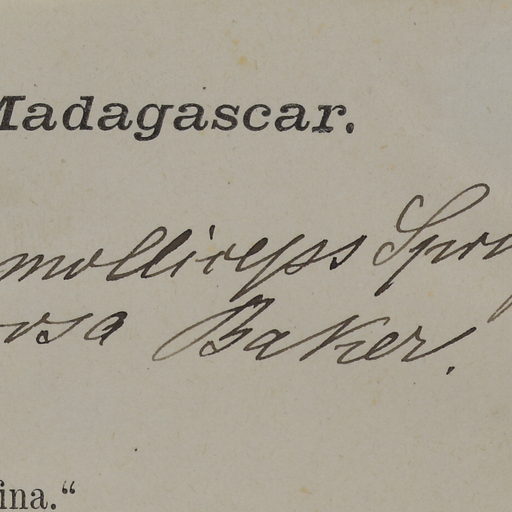 Madagascar.
molliceps Spr
osa Baker.
ina.“